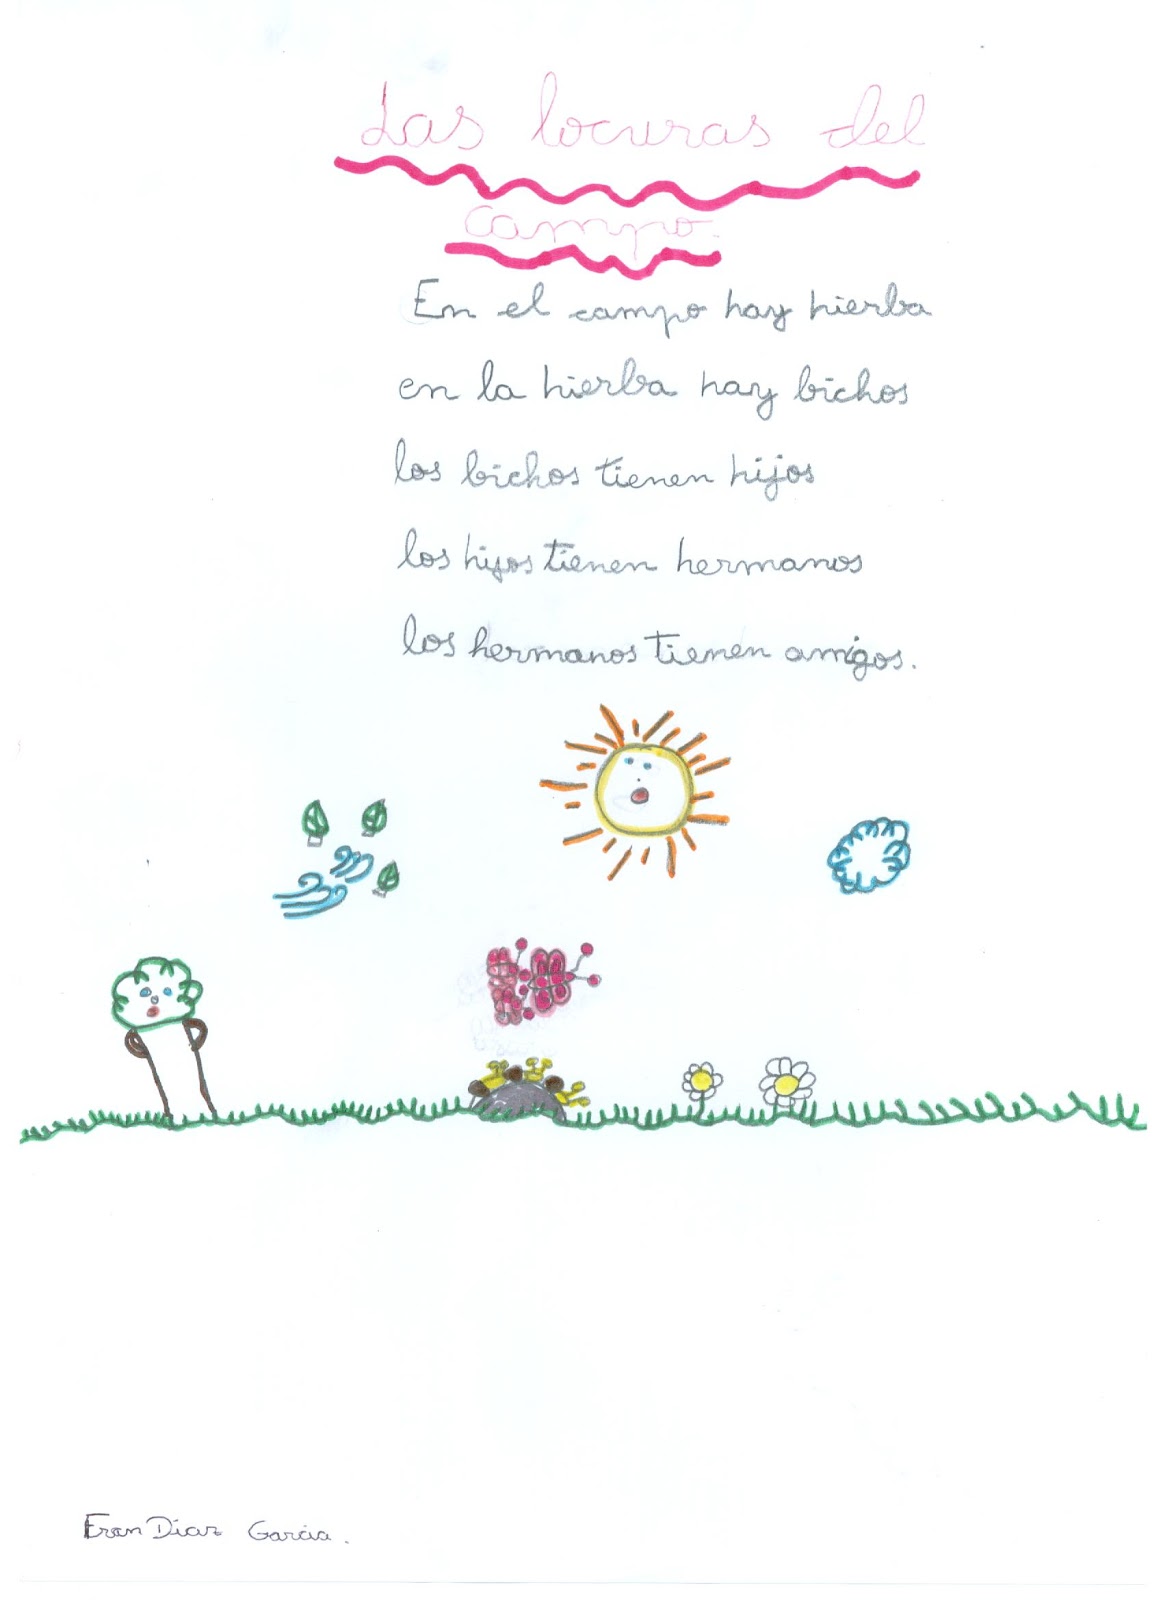 Las locuras del
campo.
En el campo hay hierba
en la hierba hay bichos
los bichos tienen hijos
los hijos tienen hermanos
los hermanos tienen amigos.
Fran Díaz García.